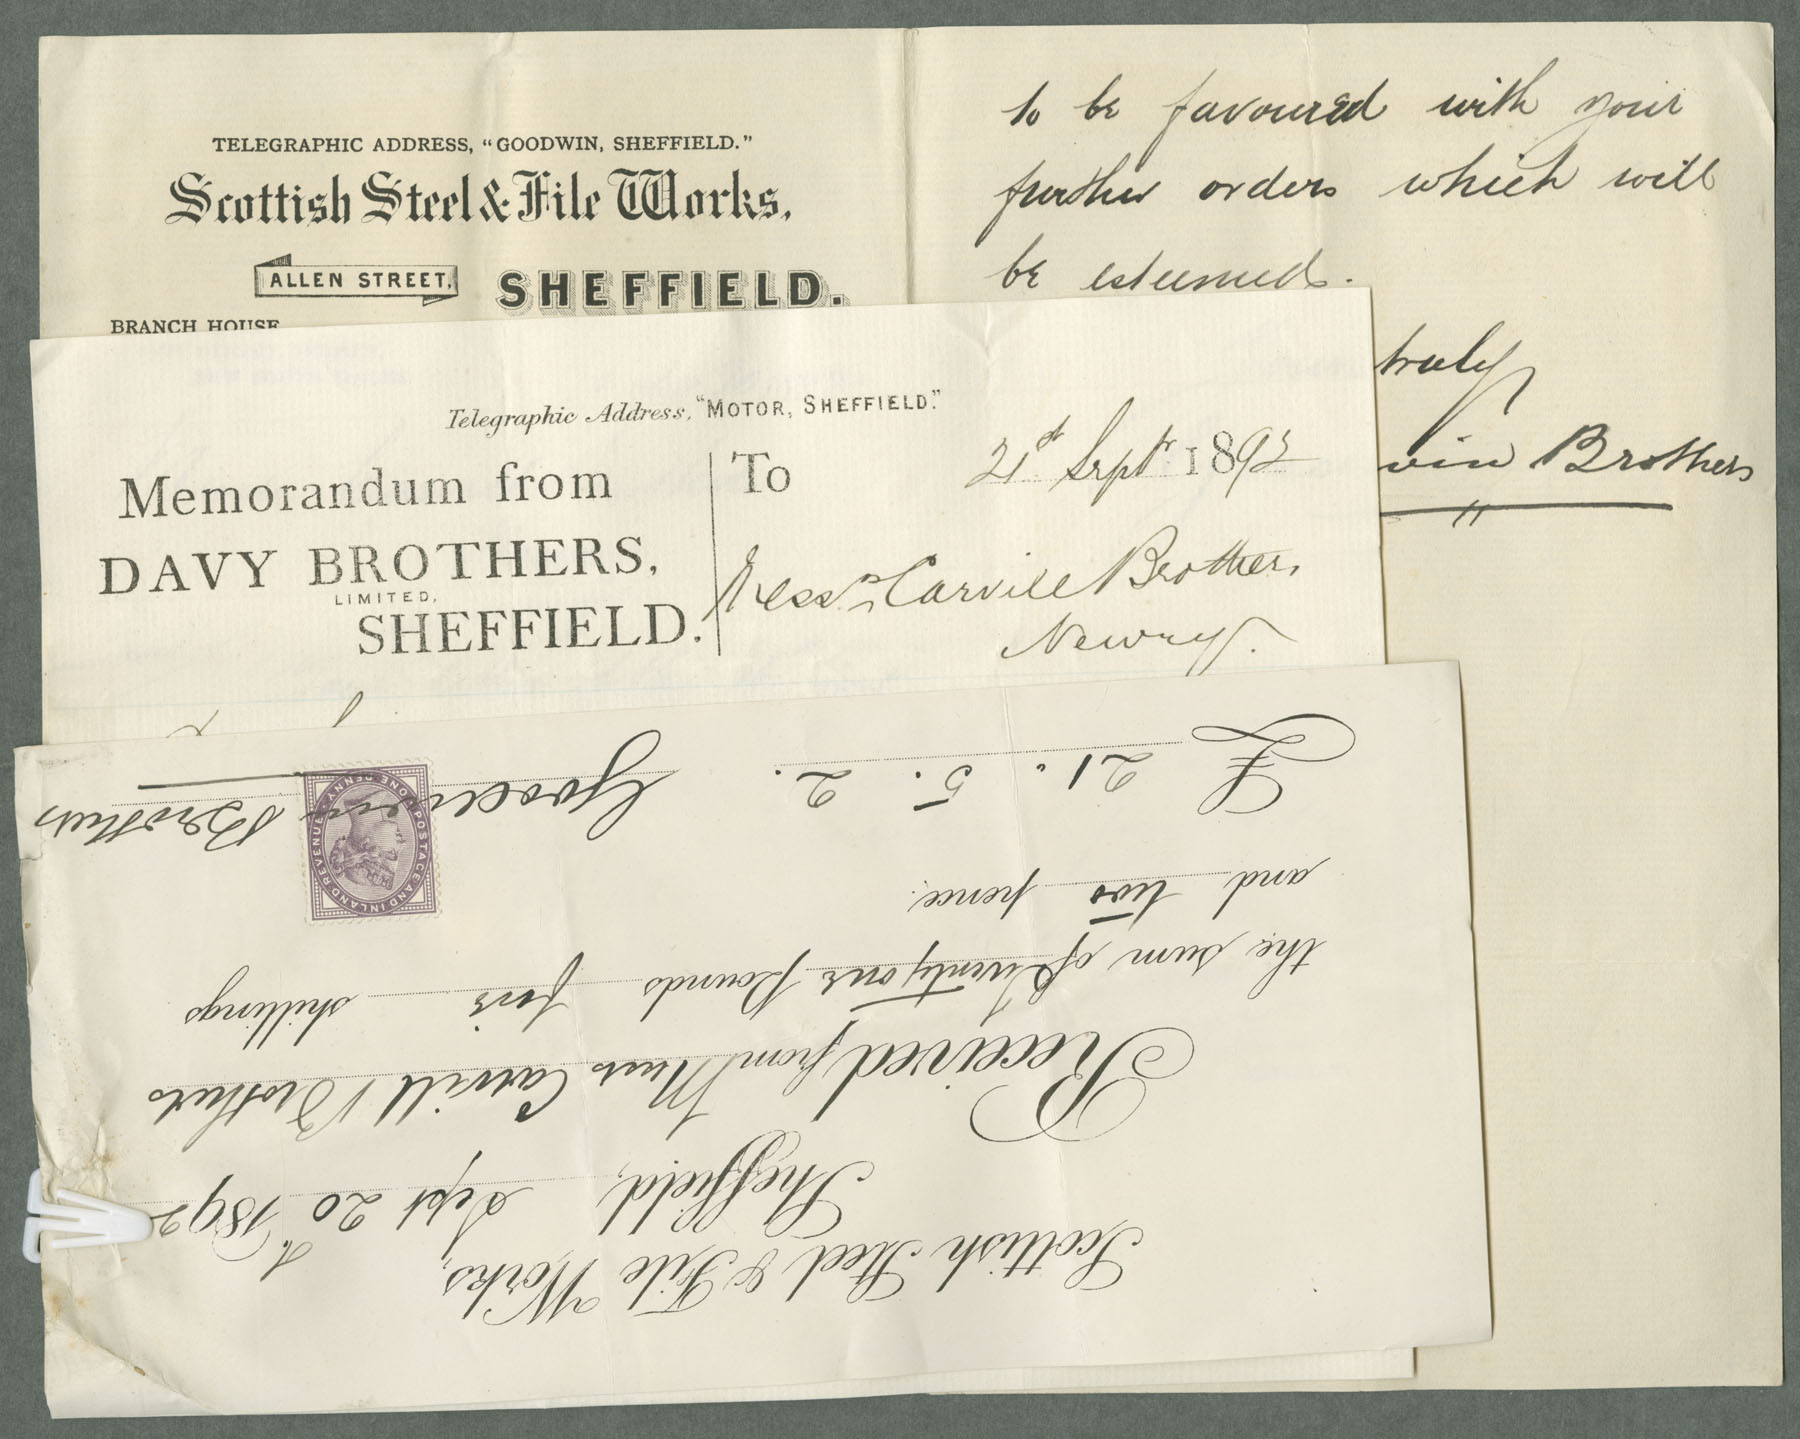 TELEGRAPHIC ADDRESS, "GOODWIN, SHEFFIELD."
Scottish Steel & File Works,
ALLEN STREET, SHEFFIELD.
BRANCH HOUSE
to be favoured with your
further orders which will
be esteemed.
truly
win Brothers
Telegraphic Address, "MOTOR, SHEFFIELD."
Memorandum from
DAVY BROTHERS,
LIMITED,
SHEFFIELD.
To
21st Sept 1892
Messrs Carvill Brothers
Newry.
Scottish Steel & File Works,
Sheffield, Sept 20th 1892
Received from Mess Carvill Brothers
the sum of Twenty one Pounds five shillings
and two pence.
£ 21. 5. 2. Goodwin Brothers
POSTAGE AND INLAND REVENUE
ONE PENNY